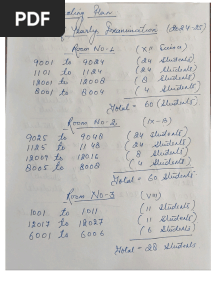 PDF
Seating Plan
Yearly Examination (2024-25)
Room No-1 (XII Science)
9001 to 9024 (24 Students)
1101 to 1124 (24 Students)
12001 to 12008 (8 Students)
8001 to 8004 (4 Students)
Total = 60 (Students)
Room No-2 (IX-B)
9025 to 9048 (24 Students)
1125 to 1148 (24 Students)
12009 to 12016 (8 Students)
8005 to 8008 (4 Students)
Total = 60 Students
Room No-3 (VIII)
1001 to 1011 (11 Students)
12017 to 12027 (11 Students)
6001 to 6006 (6 Students)
Total = 28 Students